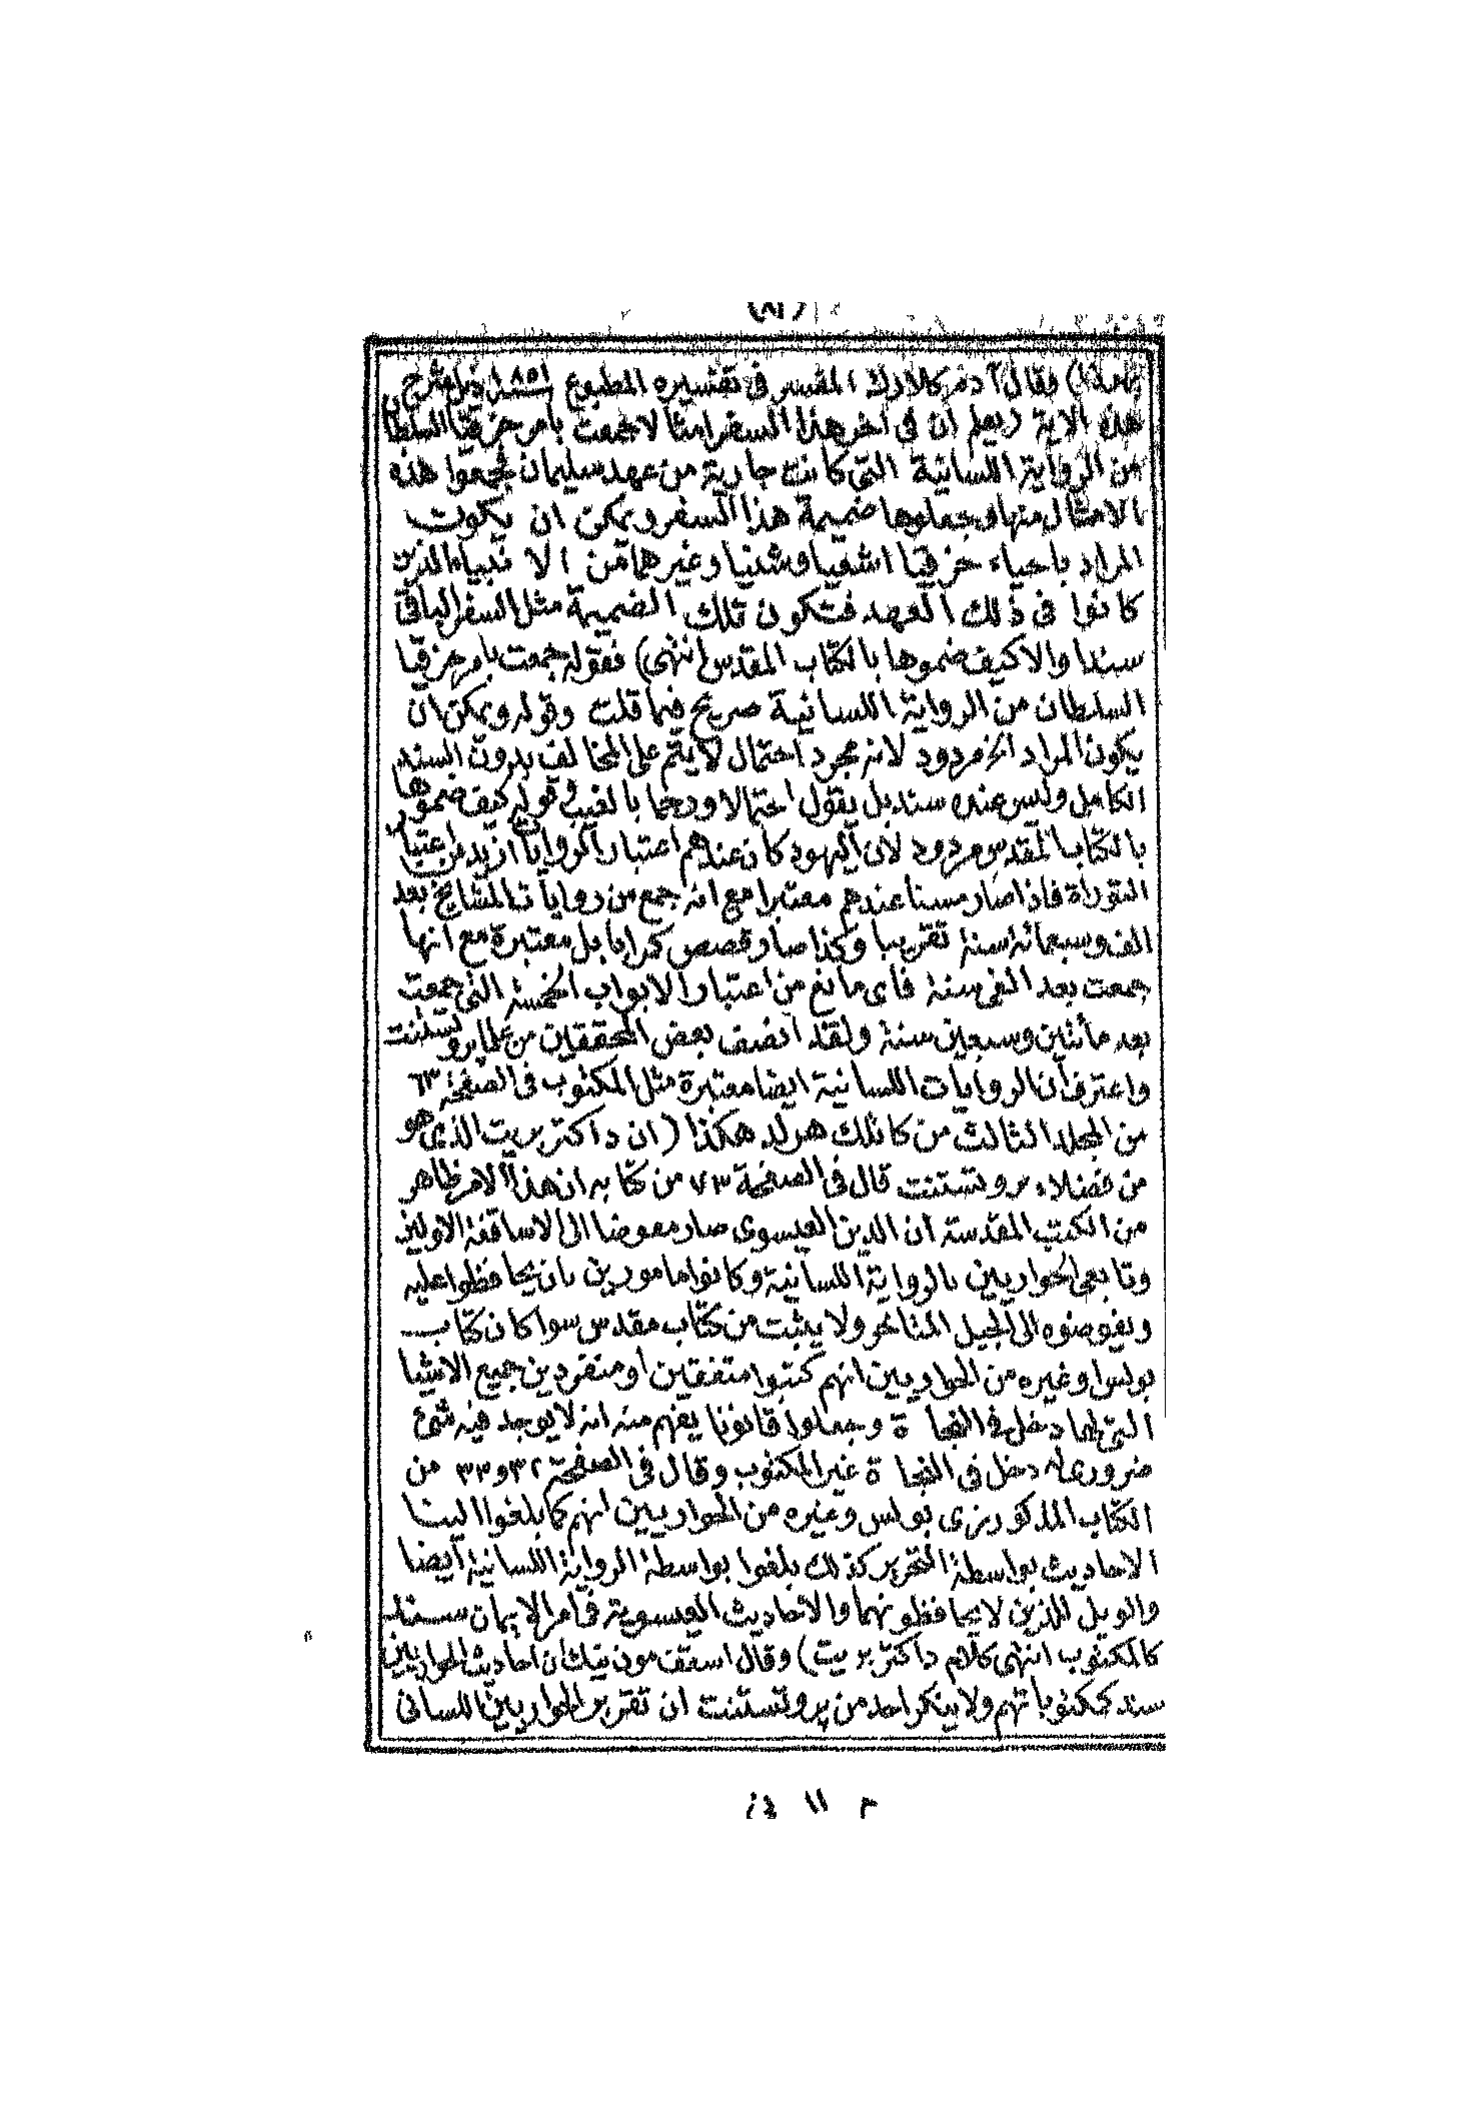 (٨١)
وقال آدم كلارك المفسر في تفسيره المطبوع ١٨٥١ ذيل شرح
هذه الاية ويعلم أن في اخر هذا السفر امثالا جمعت بامر حزقيا السلطان
من الرواية اللسانية التي كانت جارية من عهد سليمان فجمعوا هذه
الامثال منها وجعلوها ضميمة هذا السفر ويمكن ان يكون
المراد باحباء حزقيا اشعيا وشنيا وغيرهما من الانبياء الذين
كانوا في ذلك العهد فتكون تلك الضميمة مثل السفر الباقي
سندا والا كيف ضموها بالكتاب المقدس انتهى) فقوله جمعت بامر حزقيا
السلطان من الرواية اللسانية صريح فيما قلت وقوله ويمكن ان
يكون المراد الخ مردود لانه مجرد احتمال لا يتم على المخالف بدون السند
الكامل وليس عنده سند بل يقول احتمالا ورجما بالغيب وقوله كيف ضموها
بالكتاب المقدس مردود لان اليهود كان عندهم اعتبار الروايات ازيد من اعتبار
التوراة فاذا صار مسنا عندهم معتبرا مع انه جمع من روايات المشايخ بعد
الف وسبعمائة سنة تقريبا وكذا صار قصص كمرا بابل معتبرة مع انها
جمعت بعد الفي سنة فاى مانع من اعتبار الابواب الخمسة التي جمعت
بعد مأتين وسبعين سنة ولقد انصف بعض المحققين من علما بروتستنت
واعترف أن الروايات اللسانية ايضا معتبرة مثل المكتوب في الصفحة ٦٣
من المجلد الثالث من كاتلك هرلد هكذا (ان داكتر بريت الذي هو
من فضلاء بروتستنت قال في الصفحة ٧٣ من كتابه ان هذا الامر ظاهر
من الكتب المقدسة ان الدين العيسوى صار مفوضا الى الاساقفة الاولين
وتابعي الحواريين بالرواية اللسانية وكانوا مامورين بان يحافظوا عليه
ويفوضوه الى الجيل المتاخر ولا يثبت من كتاب مقدس سوا كان كتاب
بولس او غيره من الحواريين انهم كتبوا متفقين او منفردين جميع الاشيا
التي لها دخل في النجاة وجعلوا قانونا يفهم منه انه لا يوجد فيه شئ
ضروري له دخل في النجاة غير المكتوب وقال في الصفحة ٣٢ و ٣٣ من
الكتاب المذكور نرى بولس وغيره من الحواريين انهم كما بلغوا الينا
الاحاديث بواسطة التحرير كذلك بلغوا بواسطة الرواية اللسانية ايضا
والويل للذين لا يحافظونهما والاحاديث العيسوية في امر الايمان سند
كالمكتوب انتهى كلام داكتر بريت) وقال اسقف مون نيك ان احاديث الحواريين
سند كمكتوباتهم ولا ينكر احد من پروتستنت ان تقرير الحواريين اللساني
م ١١